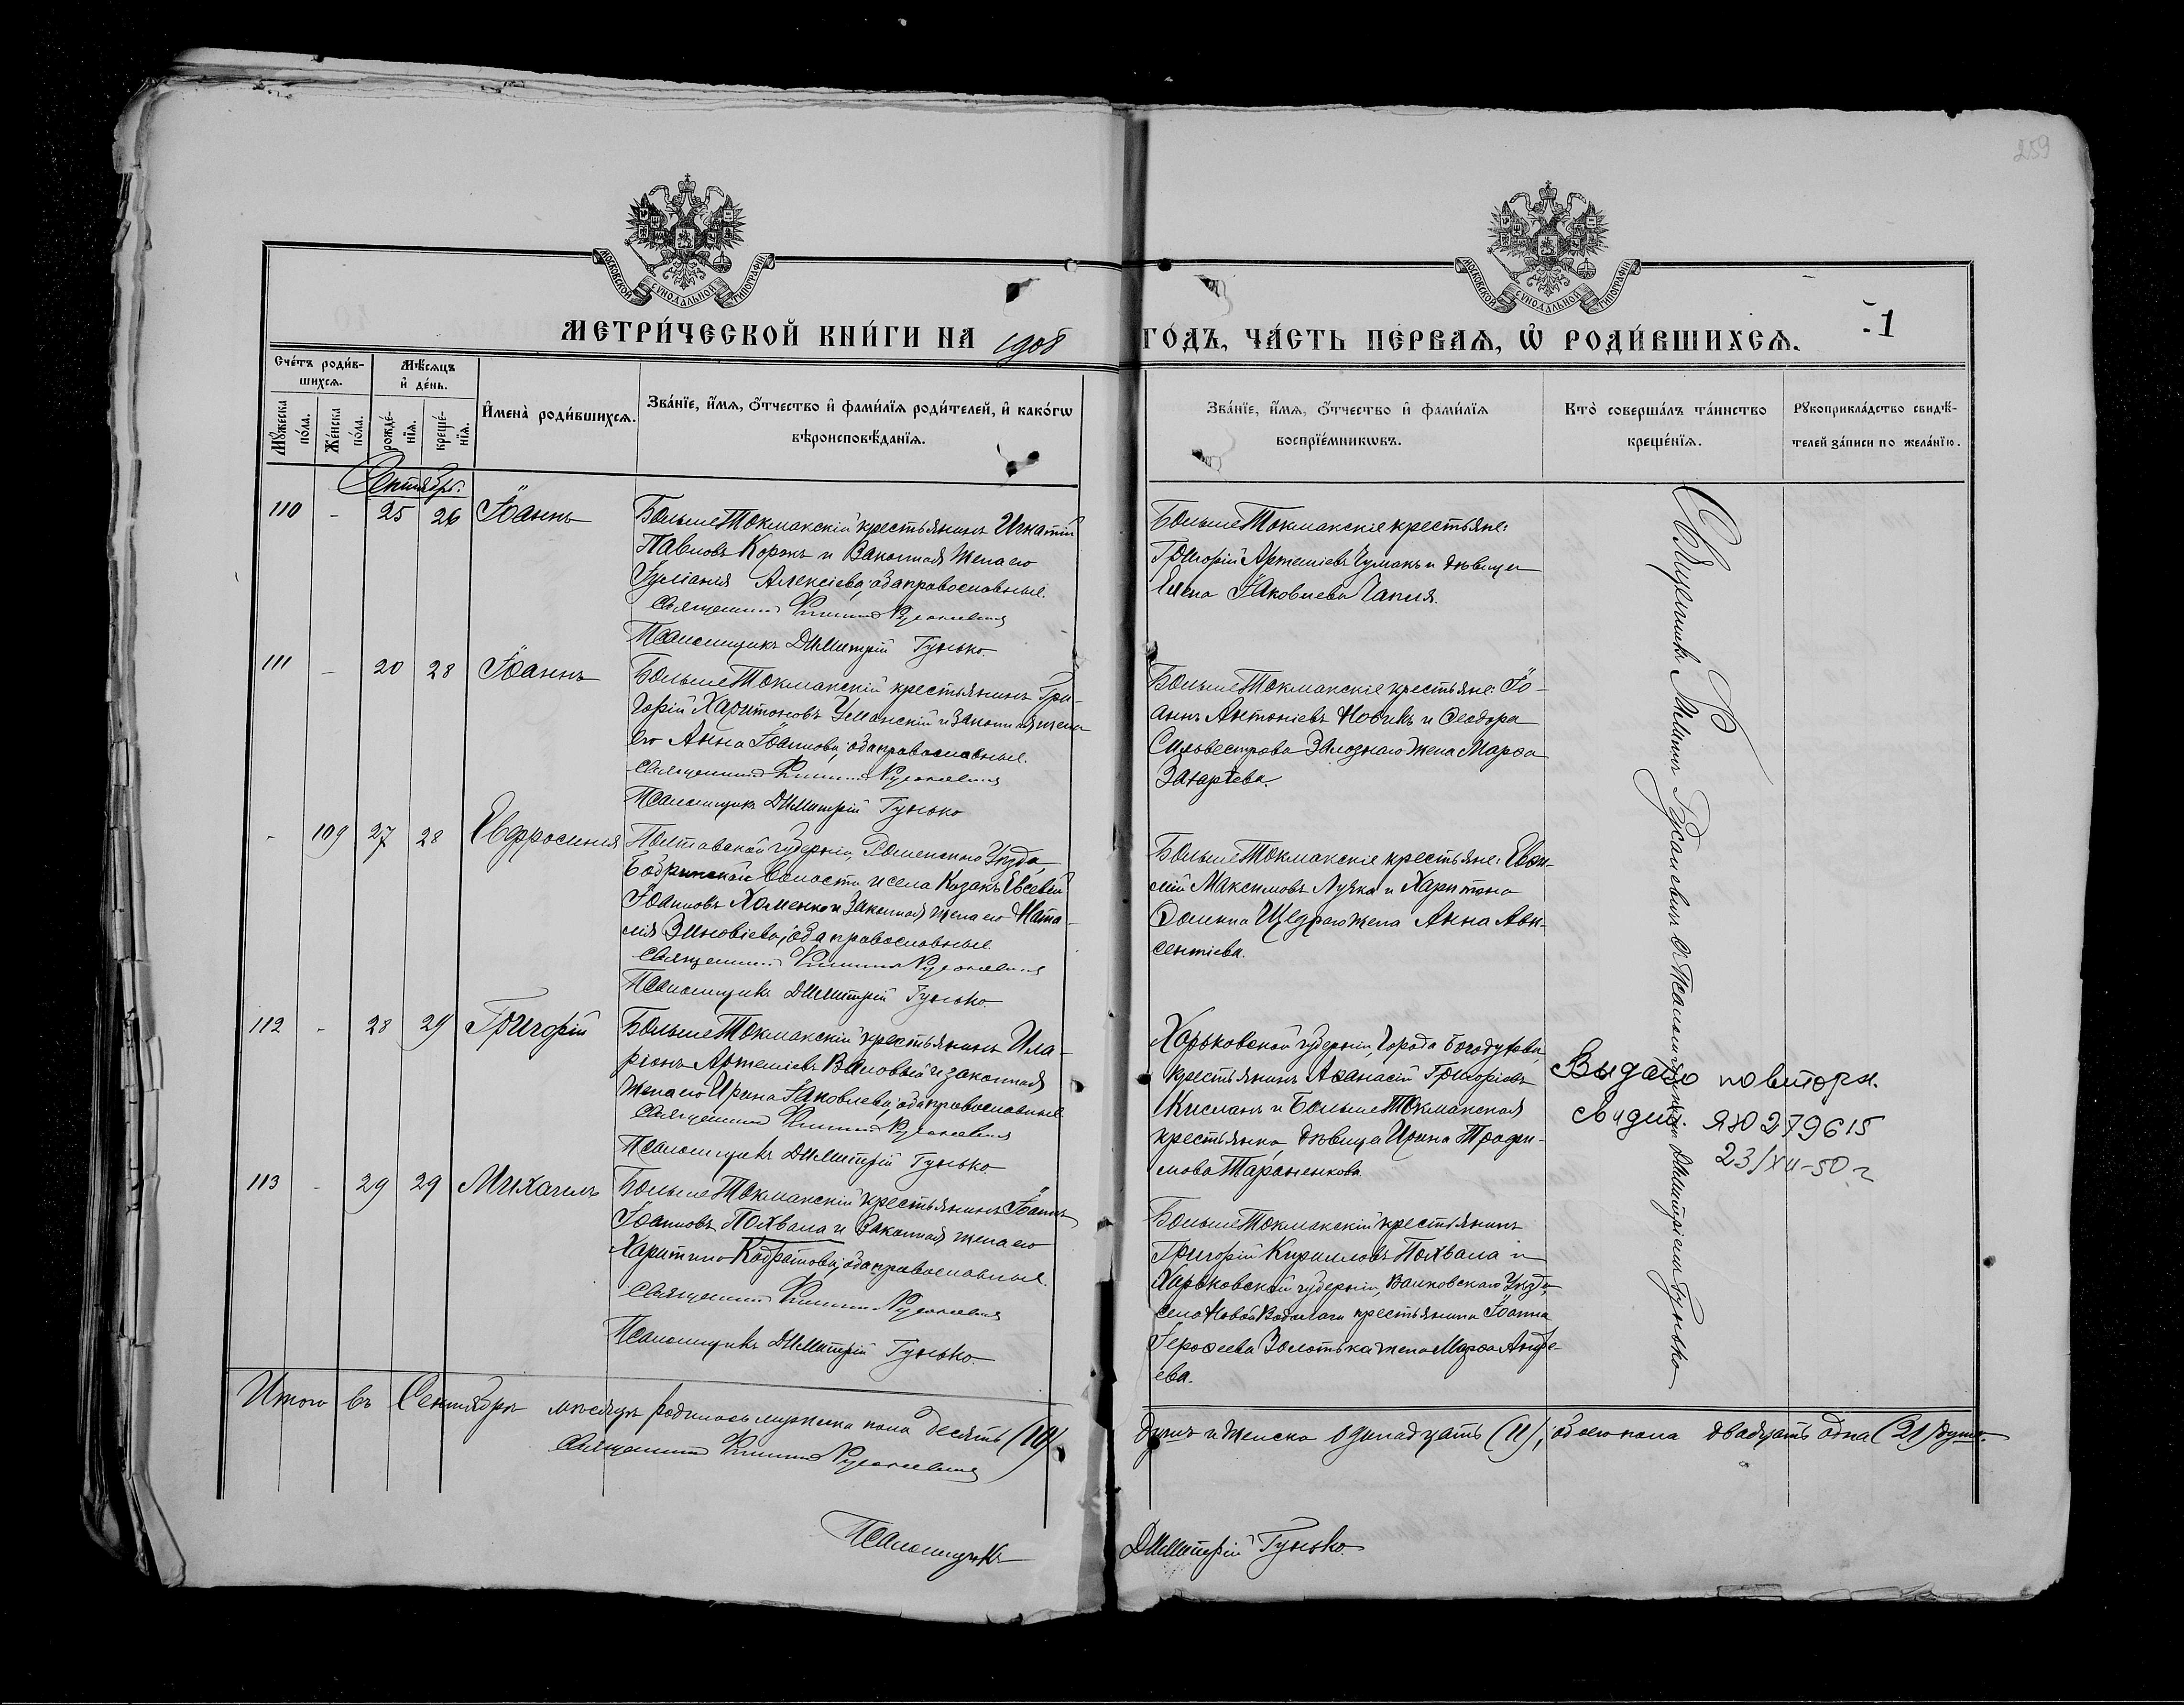 259
МОСКОВСКОЙ СѴНОДАЛЬНОЙ ТИПОГРАФІИ
МОСКОВСКОЙ СѴНОДАЛЬНОЙ ТИПОГРАФІИ
МЕТРИ́ЧЕСКОЙ КНИ́ГИ НА 1908 ГО́ДЪ, ЧА́СТЬ ПЕ́РВАѦ, Ѽ РОДИ́ВШИХСѦ.
1
Сче́тъ роди́в-
шихсѧ.
Мѣ́сѧцъ
и҆ де́нь.
Мꙋ́жеска
по́ла.
Же́нска
по́ла.
рожде́-
нїѧ.
креще́-
нїѧ.
И҆мена̀ роди́вшихсѧ.
Зва́нїе, и҆́мѧ, ѻ҆́тчество и҆ фами́лїѧ роди́телей, и҆ како́гѡ
вѣроисповѣ́данїѧ.
Зва́нїе, и҆́мѧ, ѻ҆́тчество и҆ фами́лїѧ
воспрїе́мникѡвъ.
Кто̀ соверша́лъ та́инство
креще́нїѧ.
Рꙋкоприкла́дство свидѣ́-
телей за́писи по жела́нїю.
Сентябрь.
110 - 25 26 Іоаннъ
Больше Токмакскій крестьянинъ Игнатій
Павловъ Коржъ и законная жена его
Іуліанія Алексіева; оба православные.
Священникъ
Псаломщикъ Димитрій Гунько.
Больше Токмакскіе крестьяне:
Григорій Артеміевъ Чумакъ и дѣвица
Елена Іаковлева Чапля.
111 - 20 28 Іоаннъ
Больше Токмакскій крестьянинъ Гри-
горій Харитоновъ Уманскій и законная жена
его Анна Іоаннова; оба православные.
Священникъ
Псаломщикъ Димитрій Гунько
Больше Токмакскіе крестьяне: Іо-
аннъ Антоніевъ Новикъ и Ѳеодора
Сильвестрова Залознаго жена Марѳа
Захаріева.
- 109 27 28 Евфросинія
Полтавской губерніи, Роменскаго уѣзда
волости и села казакъ Евсевій
Іоанновъ Хоменко и законная жена его Ната-
лія Зиновіева; оба православные.
Священникъ
Псаломщикъ Димитрій Гунько.
Больше Токмакскіе крестьяне: Евѳи-
мій Максимовъ Лучка и Харитона
Ѳомина Щедраго жена Анна Авк-
сентіева.
112 - 28 29 Григорій
Больше Токмакскій крестьянинъ Ила-
ріонъ Артеміевъ Валовый и законная
жена его Ирина Іаковлева; оба православные
Священникъ
Псаломщикъ Димитрій Гунько
Харьковской губерніи, города Богодухова,
крестьянинъ Аѳанасій Григоріевъ
Кисланъ и Больше Токмакская
крестьянка дѣвица Ирина Трофи-
мова Тараненкова.
Выдано повторн.
свидет. ЯЮ 279615
23/XII-50 г
113 - 29 29 Михаилъ
Больше Токмакскій крестьянинъ Іоаннъ
Іоанновъ Похвала и законная жена его
Харитина Кодратова; оба православные.
Священникъ
Псаломщикъ Димитрій Гунько.
Больше Токмакскій крестьянинъ
Григорій Кирилловъ Похвала и
Харьковской губерніи, Валковскаго уѣзда,
села Новой Водолаги крестьянина Іоанна
Іероѳеева Золотька жена Марѳа Андре-
ева.
Священникъ съ Псаломщикомъ Димитріемъ Гунько
Итого въ Сентябрѣ мѣсяцѣ родилось мужска пола десять (10)
душъ и женска одинадцать (11); обоего пола двадцать одна (21) душа.
Священникъ
Псаломщикъ Димитрій Гунько.